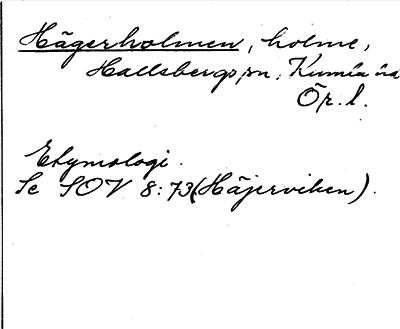 Hägerholmen, holme,
Hallsbergs sn, Kumla hd
Ör. l.
Etymologi.
Se SOV 8:73 (Häjerviken).